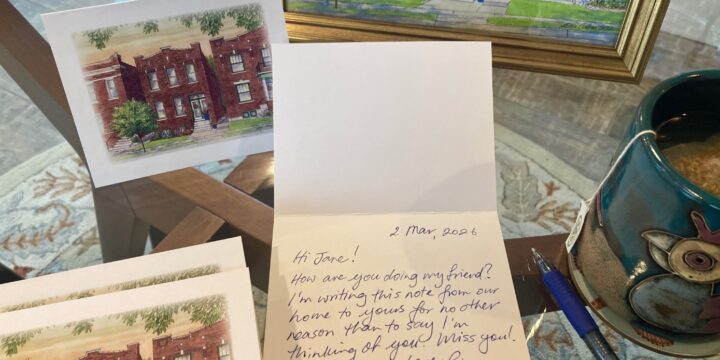 2 Mar, 2026
Hi Jane!
How are you doing my friend?
I'm writing this note from our
home to yours for no other
reason than to say I'm
thinking of you. Miss you!